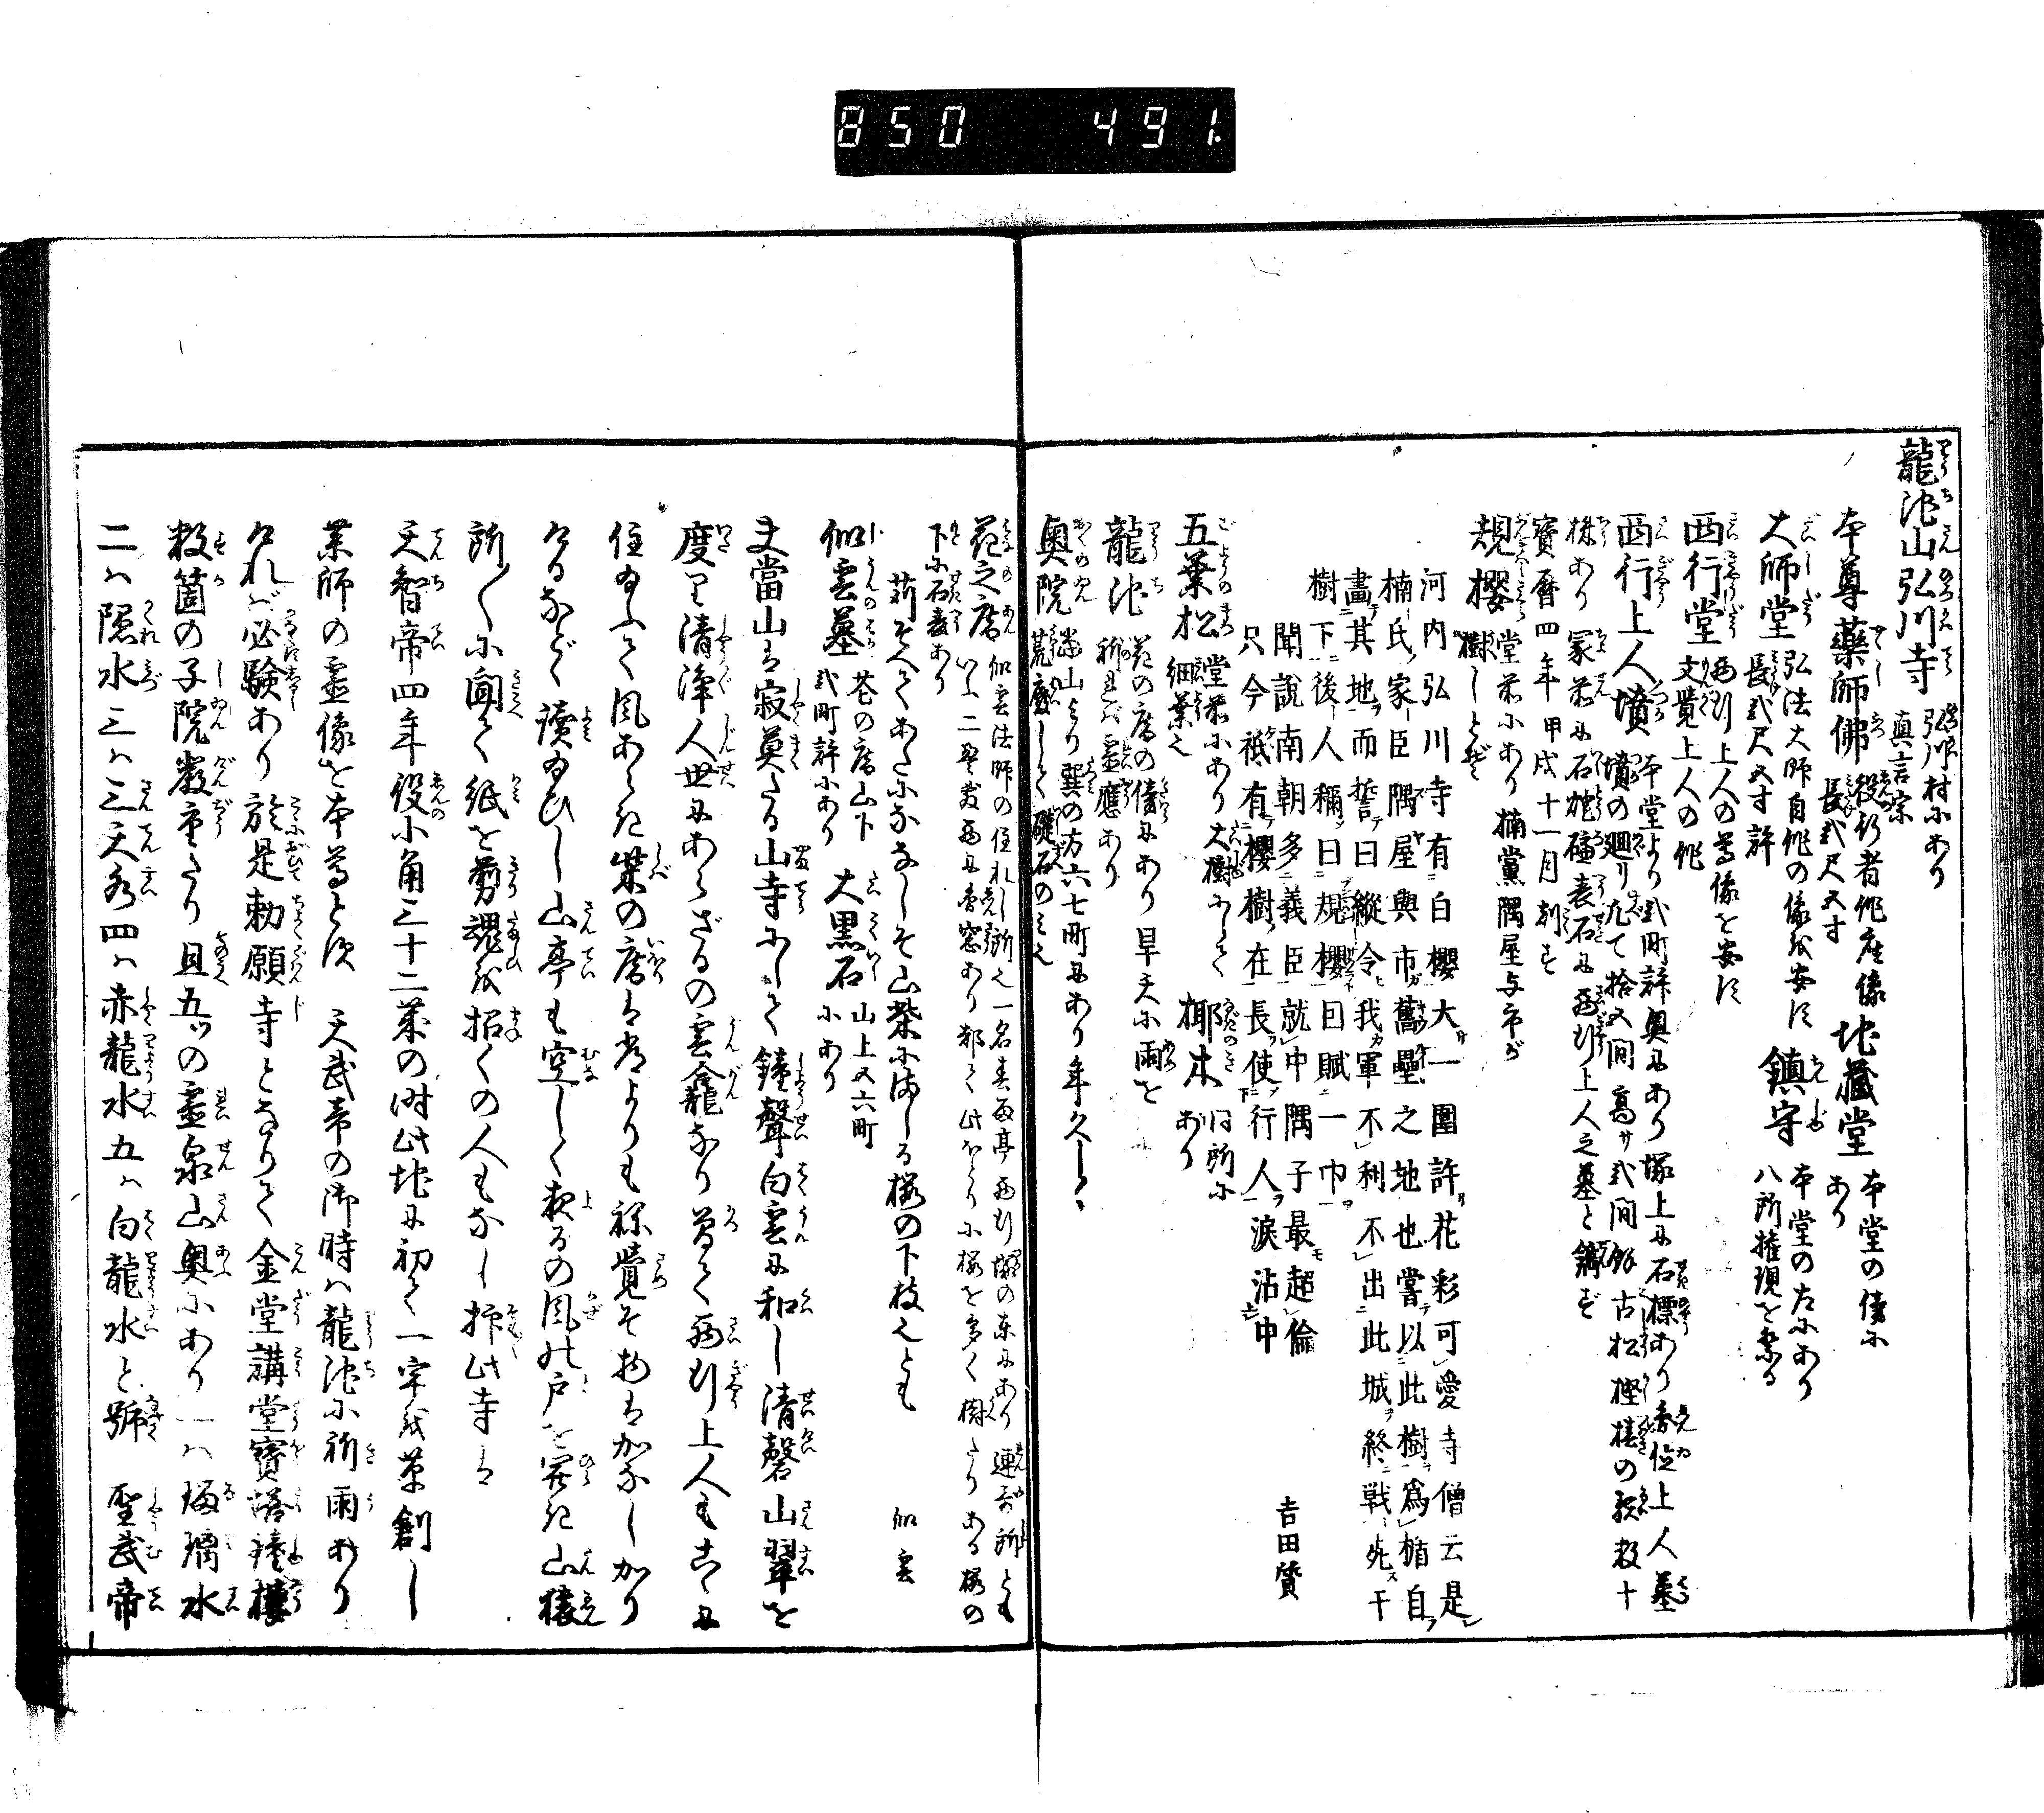 850 491
龍池山弘川寺 弘川村にあり 真言宗
本尊藥師佛 役行者作座像 長弐尺五寸 地藏堂 本堂の傍にあり
大師堂 弘法大師自作の像を安す 長弐尺五寸許 鎮守 本堂の左にあり 八所権現を祭る
西行堂 西行上人の尊像を安す 文覺上人の作
西行上人墳 本堂より弐町許奥にあり塚上に石標あり 上人墓 墳の廻り凡て拾五間高サ弐間餘古松樫椿の類数十
株あり冢前に石 表石に西行上人之墓と鐫ず
寶暦四年甲戌十一月 す
規櫻 堂前にあり楠黨隅屋与市が 樹しとぞ
河内弘川寺有白櫻大サ一圍許花彩可愛寺僧云是
楠氏家臣隅屋與市舊壘之地也嘗以此樹爲楯自
畫其地而誓曰縱令我軍不利不出此城終戰死干
樹下後人稱曰規櫻回賦一巾
聞説南朝多義臣就中隅子最超倫
只今祇有櫻樹在長使行人淚沾巾 吉田贇
五葉松 堂前にあり大樹にして細葉也 椰木 同所にあり
龍池 花の庵の傍にあり旱天に雨を祈れば靈應あり
奥院 當山より巽の方六七町にあり年久しく荒廢して礎石のみ也
花之庵 似雲法師の住れし所也一名春雨亭西行塚の東にあり連哥所とも
いふ 窓あり都て此ほとりに桜を多く樹たりある桜の
下に石 あり
折そへてあたになしそ山柴にましる桜の下枝也とも 似雲
似雲墓 花の庵山下弐町許にあり 大黒石 山上五六町にあり
夫當山は寂莫たる山寺にして鐘聲白雲に和し清磬山翠を
度り清淨人世にあらざるの雲龕なり曾て西行上人もこゝに
住給ふて風あらき柴の庵は常よりも祢覺そ物はかなしかり
けるなどゝ讀給ひし山亭も空しく夜るの風此戸を突き山猿
所〱に聞て紙を剪魂を招くの人もなし抑此寺は
天智帝四年役小角三十二歳の時此地に初て一宇を草創し
薬師の靈像を本尊とす 天武帝の御時ハ龍池に祈雨あり
けれバ必験あり於是勅願寺となりて金堂講堂寶塔鐘樓
数箇の子院巌重たり且五ツの靈泉山奥にあり一ハ瑠璃水
二ハ隠水三ハ三天水四ハ赤龍水五ハ白龍水と號 聖武帝